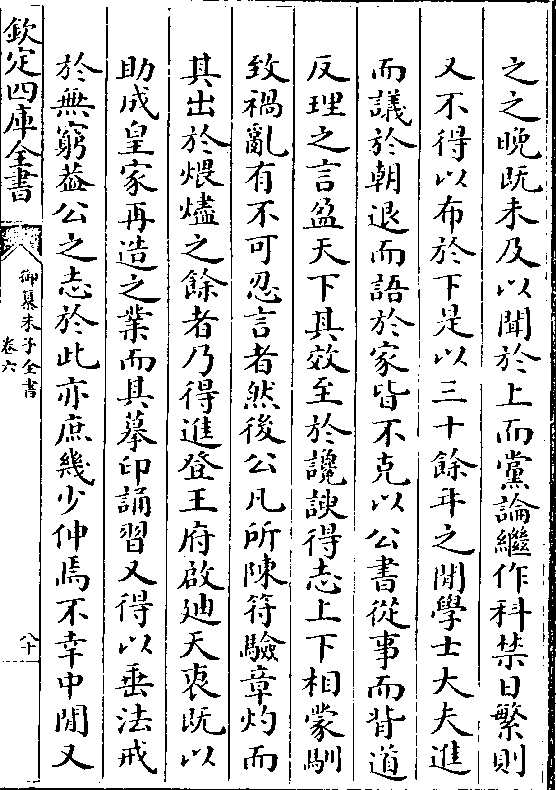 之之晚既未及以聞於上而黨論繼作科禁日繁則
又不得以布於下是以三十餘年之閒學士大夫進
而議於朝退而語於家皆不克以公書從事而背道
反理之言盈天下其效至於讒諛得志上下相蒙馴
致禍亂有不可忍言者然後公凡所陳符驗章灼而
其出於煨燼之餘者乃得進登王府啟廸天衷既以
助成皇家再造之業而其摹印誦習又得以垂法戒
於無窮葢公之志於此亦庶幾少伸焉不幸中閒又
欽定四庫全書
御纂朱子全書
卷六
八十